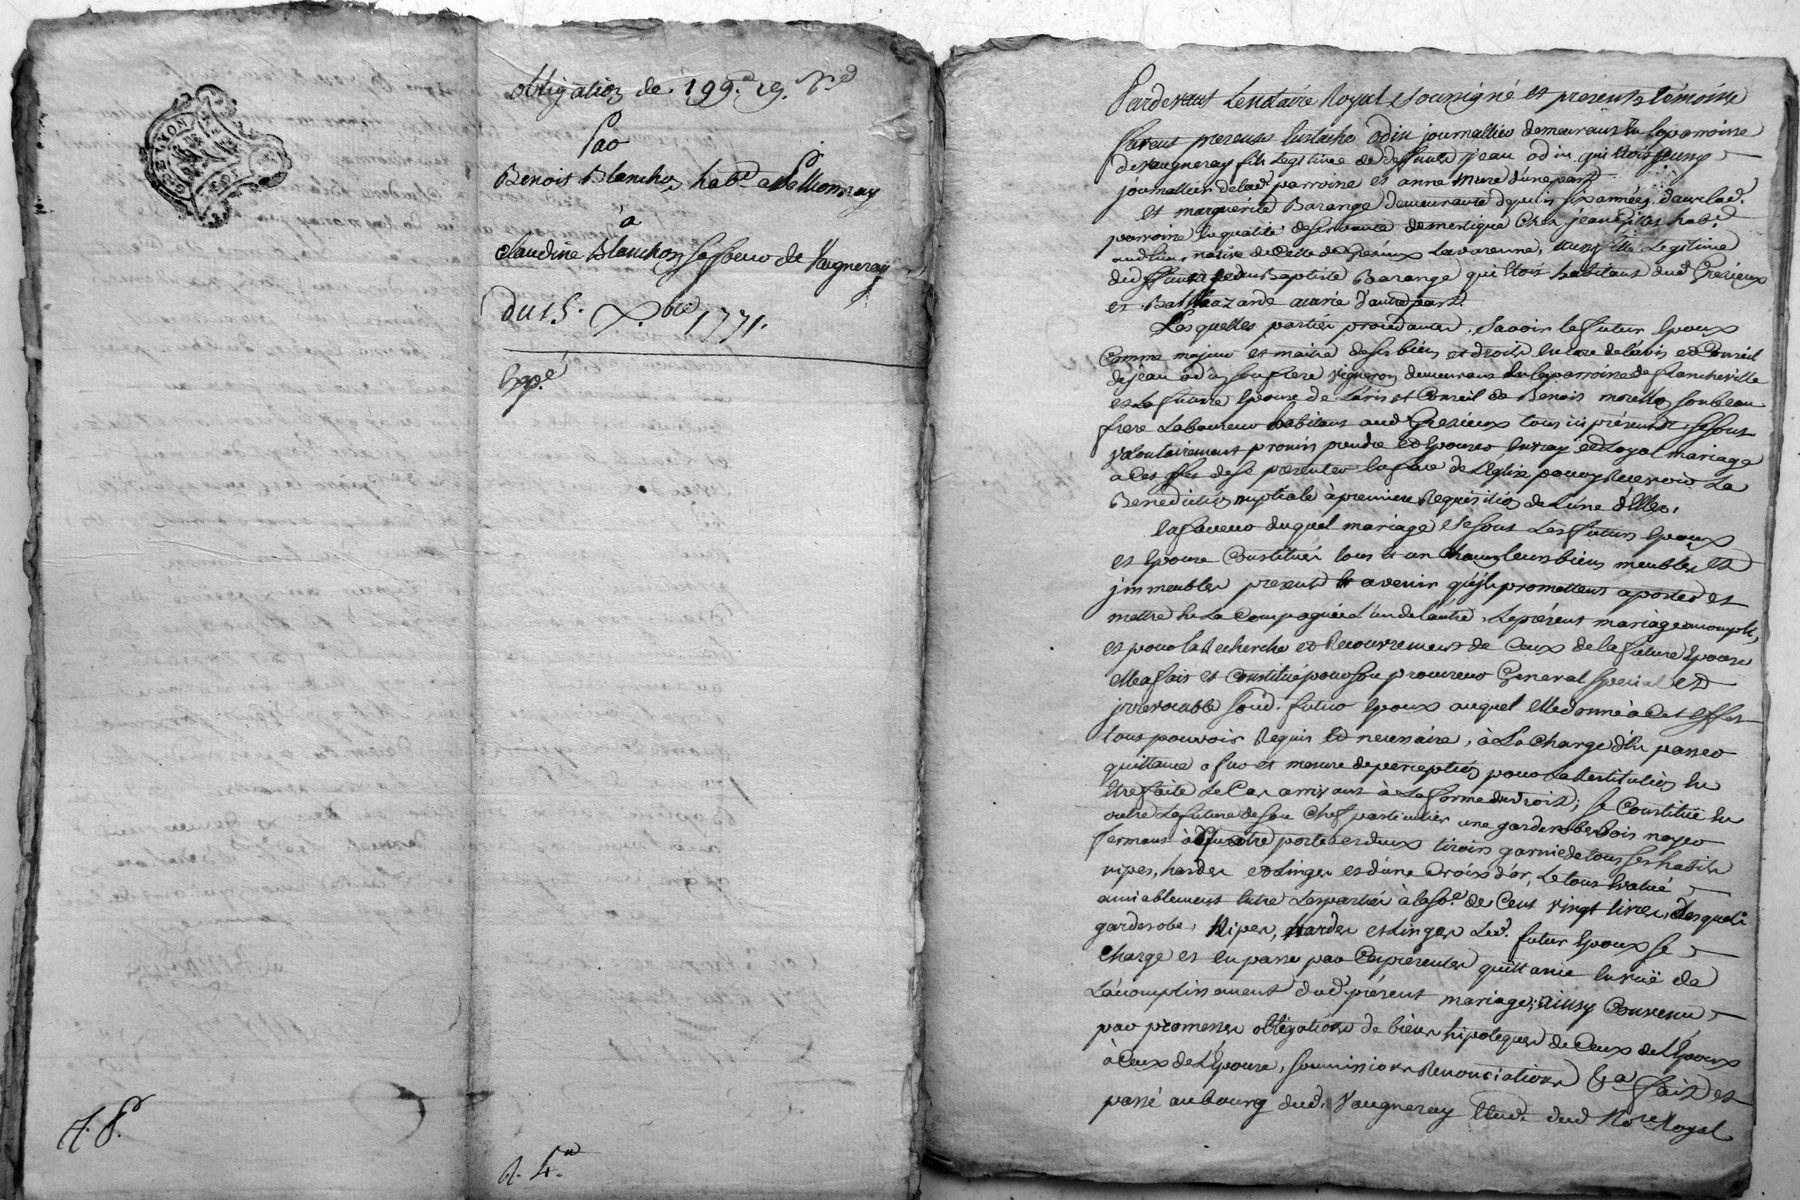 obligation de 199.# 19.s
Par
Benoit Blanchon hab.t a Pollionnay
à
Claudine Blanchon sa soeur de Vaugneray
du 15. Xbre 1771.
Exp.é
Pardevant Le notaire Royal soussigné et presents temoins
furent presents Eustache odin journallier demeurant en la parroisse
de vaugneray fils Legitime de deffunt jean odin qui vivoit
journallier de lad.e parroisse et anne mure d'une part
et marguerite Barange demeurante depuis six années dans lad.
parroisse en qualité de servante domestique chez jean hab.t
aud. lieu, native de Celle de Grésieux Lavarenne, fille Legitime
de deffunt jean Baptiste Barange qui étoit habitant dud. Gresieux
et Balthazarde d'autre part.
Lesquelles parties procedantes, Savoir le futur Epoux
Comme majeur et maitre de ses biens et droits en lavis et Conseil
de jean odin son frere vigneron demeurant en la parroisse de francheville
et La future Epouse de L'avis et Conseil de Benoit morellon son beau
frere Laboureur habitant aud. Gresieux tous ici présents se sont
volontairement promis prendre et Epouser en vray et Loyal mariage
a Ces effets de se presenter en face de L'Eglise pour y Recevoir La
Benediction nuptiale à premiere Requisition de L'une d'Elles,
En faveur duquel mariage se sont Les futurs Epoux
et Epouse Constitués tous et un chacuns leurs biens meubles et
jmmeubles presents et avenir qu'ils promettent aporter et
mettre en La Compagnie L'un de l'autre, Le présent mariage accompli,
et pour la Recherche et Recouvrement de Ceux de la future Epouse
elle a fait et Constitué pour son procureur General special et
jrrevocable sond. futur Epoux auquel elle donne à Cet effet
tous pouvoir Requis et necessaire, à La charge d'En passer
quittance a fur et mesure de perception pour La Restitution En
Etre faite Le Cas arrivant à La forme du Droit; se Constitue En
outre La future de son Chef particulier une garderobe Bois noyer
fermant à quatre portes et deux tiroirs garnie de tous ses habits
nipes, hardes et Linges et d'une Croix d'or, Le tout Evalué
amiablement Entre Les parties à la so.e de Cent vingt livres, desquels
garderobe, Nipes, hardes et Linges Led. futur Epoux se
Charge et En passe par Ces presentes quittance En vuë de
L'accomplissement dud. présent mariage; ainsy Convenu
par promesses obligations de biens hipoteques de Ceux de L'Epoux
à Ceux de L'Epouse, soumissions Renonciations &a fait et
passé au bourg dud. Vaugneray Etude dud. No.re Royal
A. 8.e